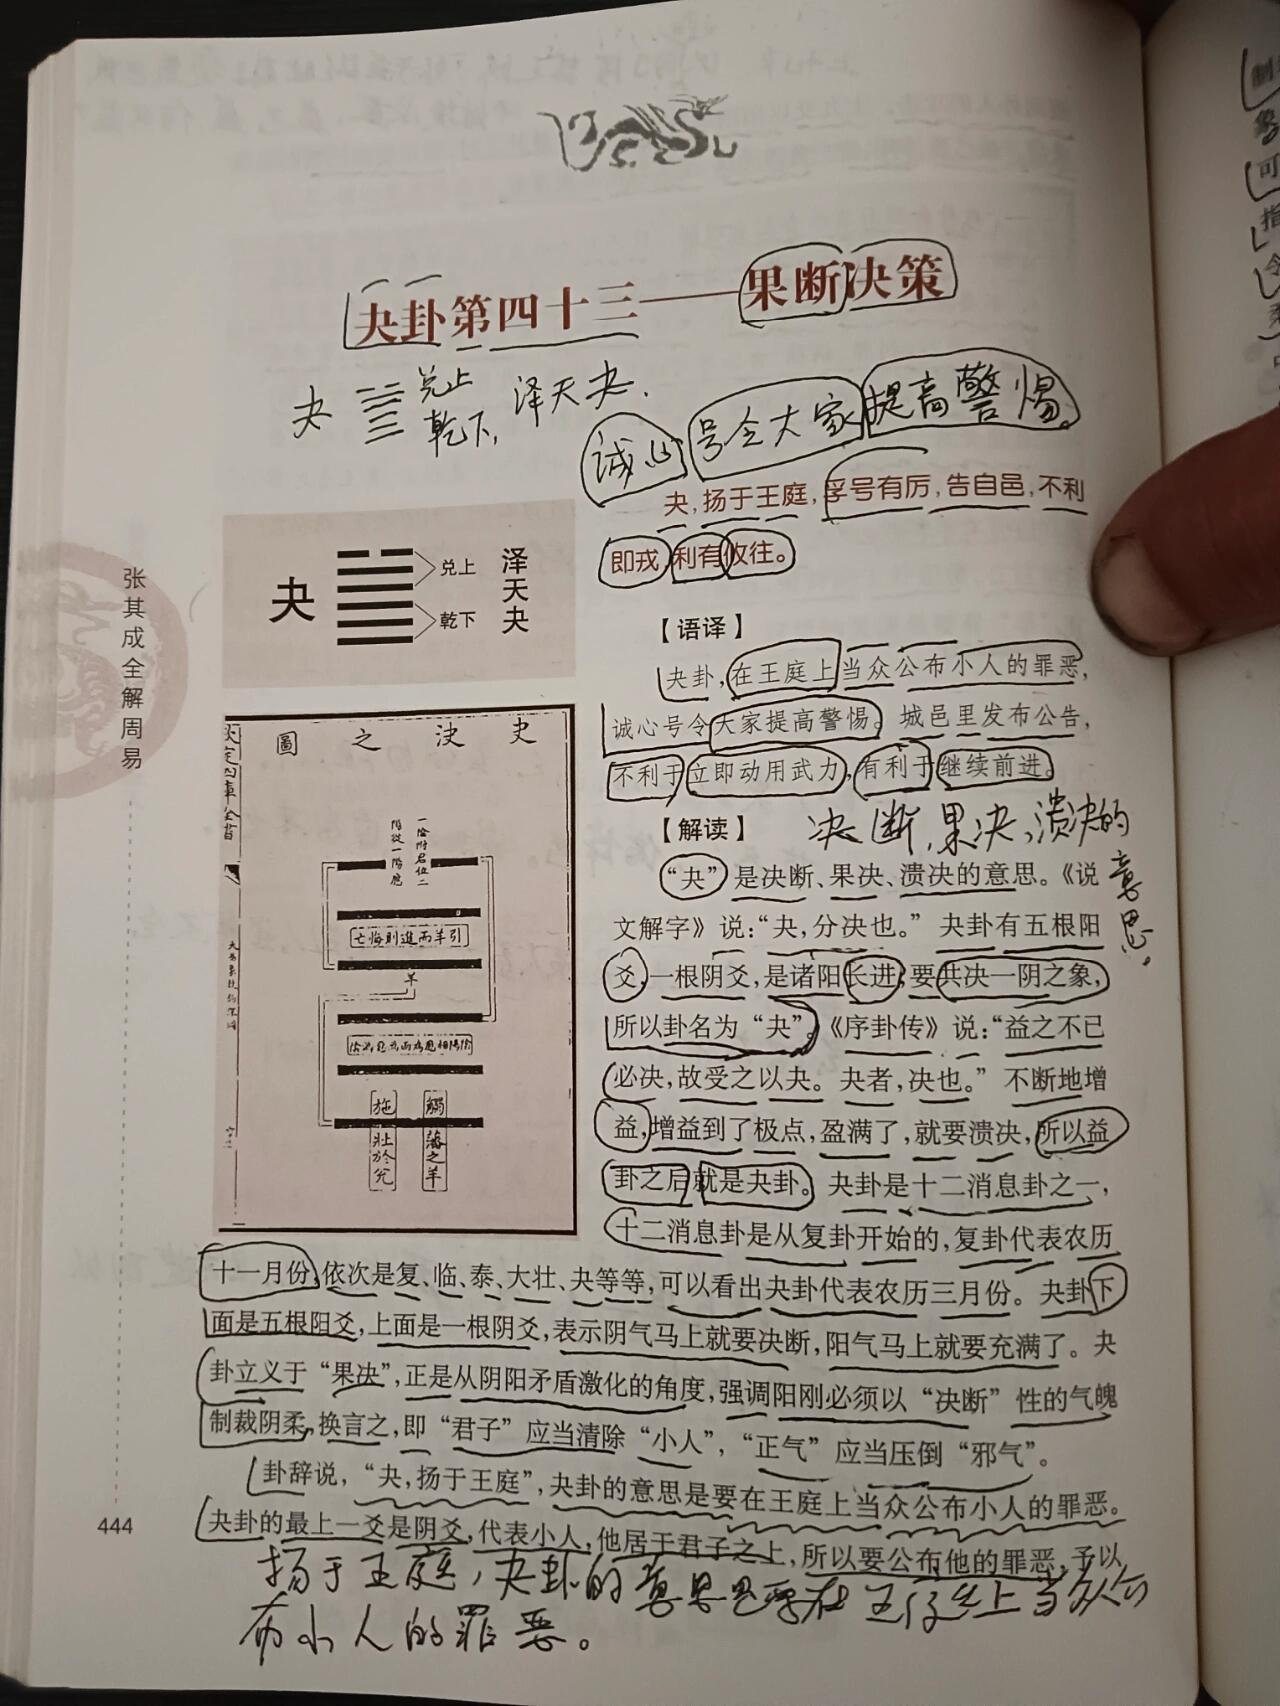 夬卦第四十三——果断决策
夬 兑上
乾下, 泽天夬.
诚心 号令大家 提高警惕。
夬,扬于王庭,孚号有厉,告自邑,不利
即戎,利有攸往。
夬
兑上
乾下
泽天夬
【语译】
夬卦,在王庭上当众公布小人的罪恶,
诚心号令大家提高警惕。城邑里发布公告,
不利于立即动用武力,有利于继续前进。
【解读】
决断,果决,溃决的
意思。
“夬”是决断、果决、溃决的意思。《说
文解字》说:“夬,分决也。”夬卦有五根阳
爻,一根阴爻,是诸阳长进,要共决一阴之象,
所以卦名为“夬”。《序卦传》说:“益之不已
必决,故受之以夬。夬者,决也。”不断地增
益,增益到了极点,盈满了,就要溃决,所以益
卦之后就是夬卦。夬卦是十二消息卦之一,
十二消息卦是从复卦开始的,复卦代表农历
十一月份,依次是复、临、泰、大壮、夬等等,可以看出夬卦代表农历三月份。夬卦下
面是五根阳爻,上面是一根阴爻,表示阴气马上就要决断,阳气马上就要充满了。夬
卦立义于“果决”,正是从阴阳矛盾激化的角度,强调阳刚必须以“决断”性的气魄
制裁阴柔,换言之,即“君子”应当清除“小人”,“正气”应当压倒“邪气”。
卦辞说,“夬,扬于王庭”,夬卦的意思是要在王庭上当众公布小人的罪恶。
夬卦的最上一爻是阴爻,代表小人,他居于君子之上,所以要公布他的罪恶,予以
扬于王庭,夬卦的意思是要在王庭上当众公
布小人的罪恶。
圖之決夬
一陰附君位二
陽從一陽應
亡悔則進而羊引
羊
施壯於兌
觸藩之羊
张其成全解周易
444